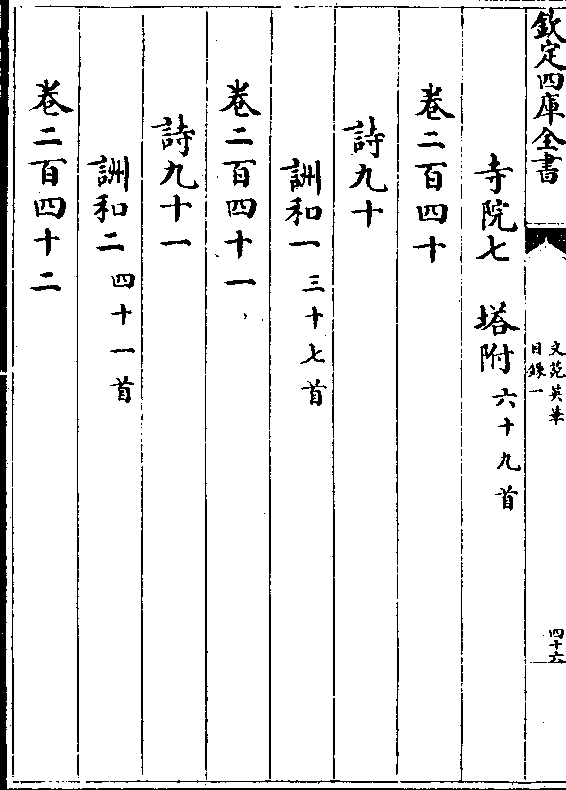 欽定四庫全書
文苑英華
目錄一
四十六
寺院七　塔附六十九首
卷二百四十
詩九十
詶和一三十七首
卷二百四十一
詩九十一
詶和二四十一首
卷二百四十二